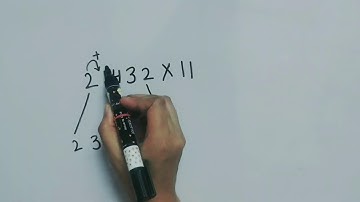 +
2 432 X 11
2 3